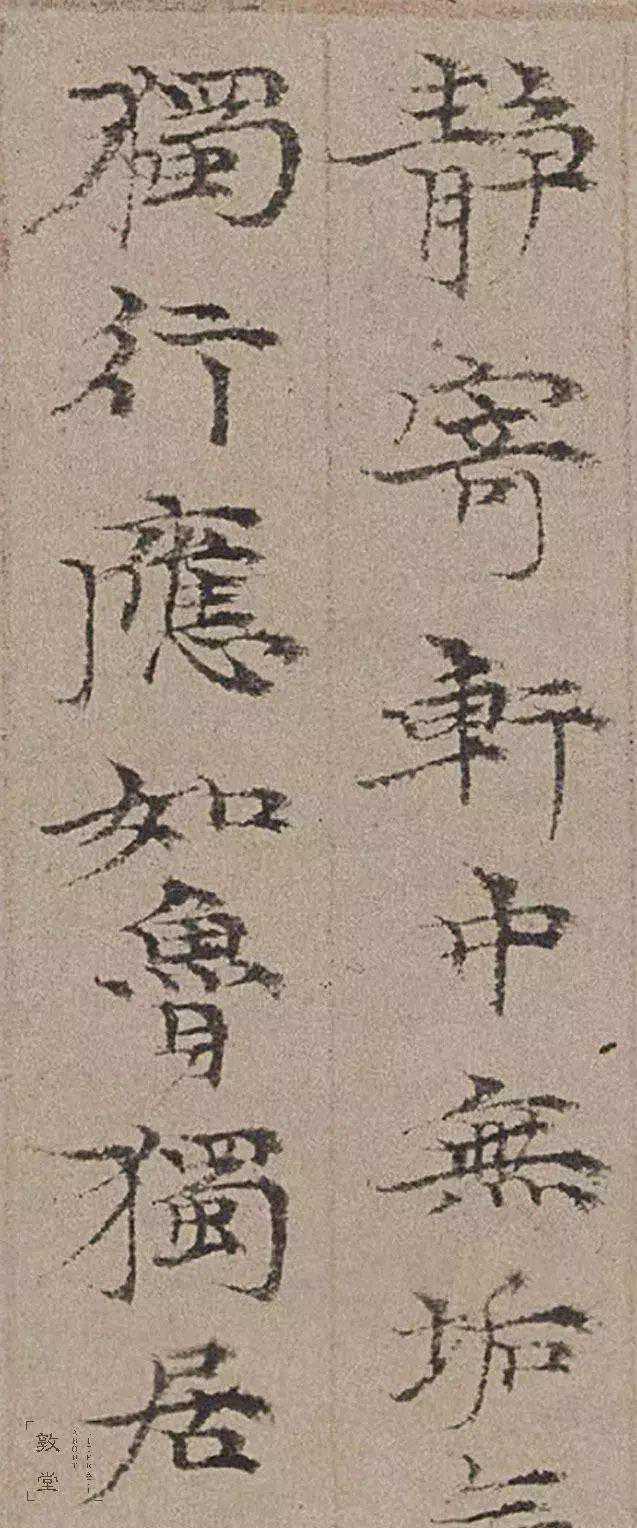 静寄軒中無垢
獨行應如魯獨居
敦堂